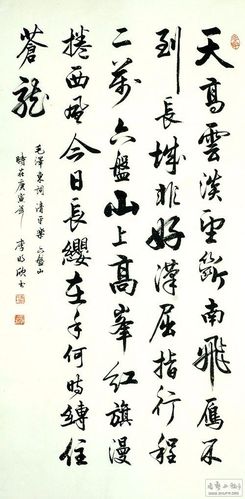 天高雲淡望斷南飛雁不
到長城非好漢屈指行程
二萬六盤山上高峯紅旗漫
捲西風今日長纓在手何時縛住
蒼龍
毛澤東詞清平樂六盤山
時在庚寅年李明